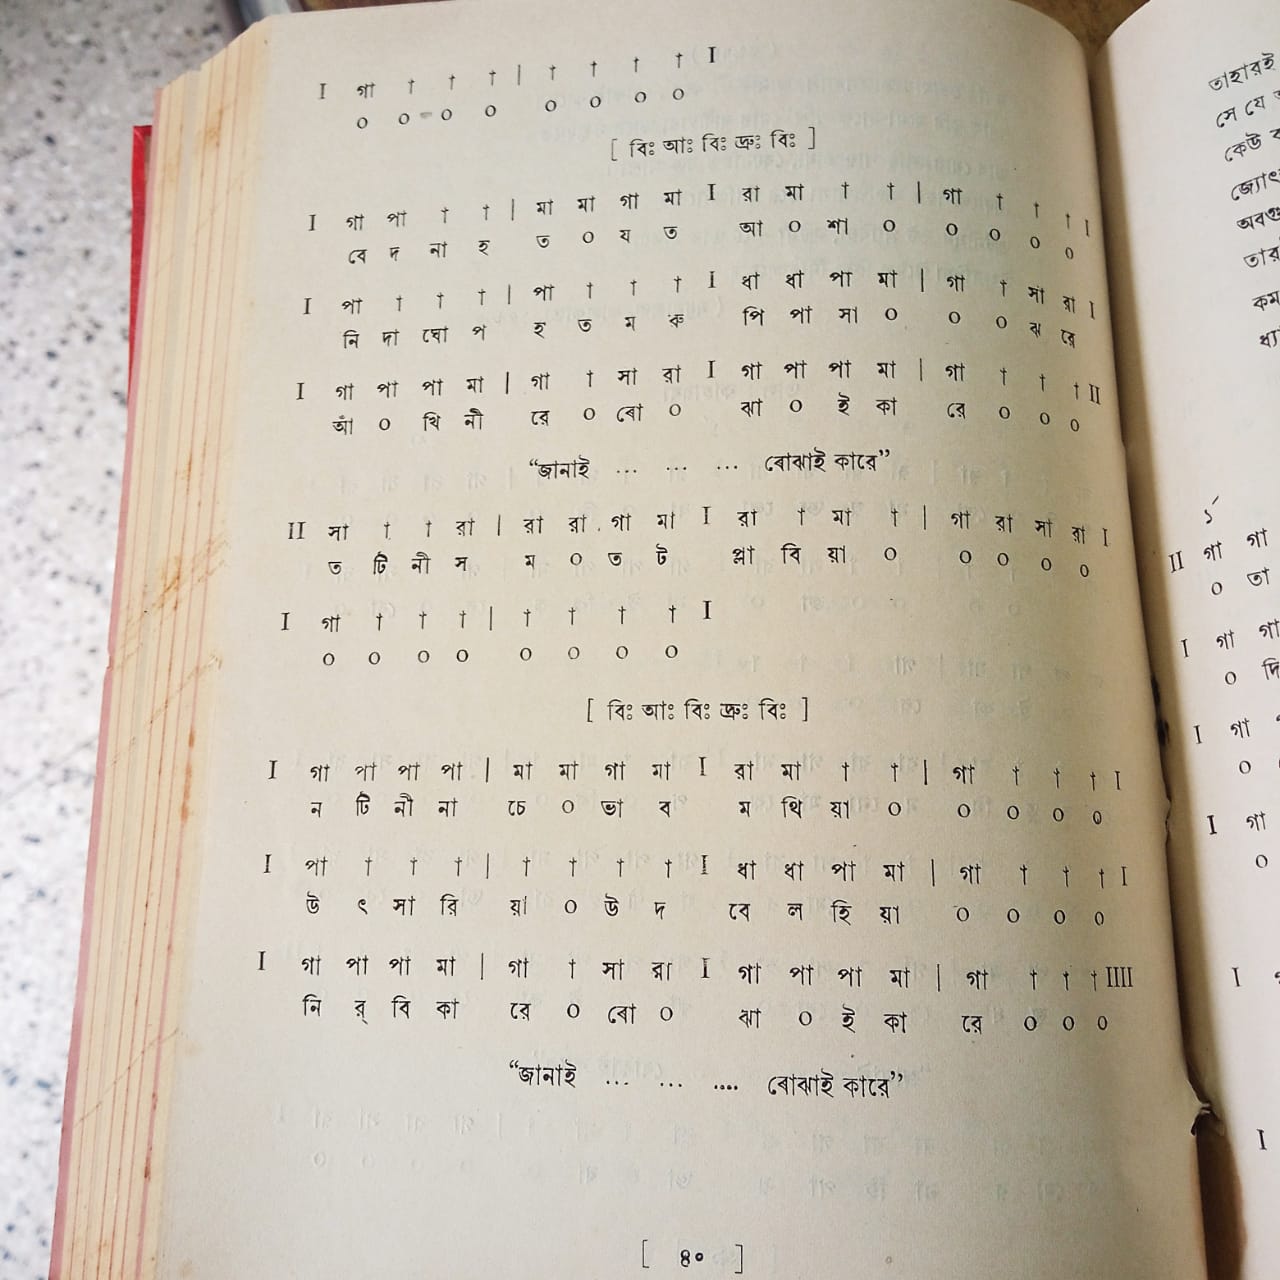 I গা † † † | † † † † I
০ ০ ০ ০ ০ ০ ০ ০
[ বিঃ আঃ বিঃ দ্রুঃ বিঃ ]
I গা পা † † | মা মা গা মা I রা মা † † | গা † † † I
বে দ না হ ত ০ য ত আ ০ শা ০ ০ ০ ০ ০
I পা † † † | পা † † † I ধা ধা পা মা | গা † সা রা I
নি দা ঘো প হ ত ম রু পি পা সা ০ ০ ০ ঝ রে
I গা পা পা মা | গা † সা রা I গা পা পা মা | গা † † † II
আঁ ০ খি নী রে ০ বো ০ ঝা ০ ই কা রে ০ ০ ০
“জানাই ... ... ... বোঝাই কারে”
II সা † † রা | রা রা গা মা I রা † মা † | গা রা সা রা I
ত টি নী স ম ০ ত ট প্লা বি য়া ০ ০ ০ ০ ০
I গা † † † | † † † † I
০ ০ ০ ০ ০ ০ ০ ০
[ বিঃ আঃ বিঃ দ্রুঃ বিঃ ]
I গা পা পা পা | মা মা গা মা I রা মা † † | গা † † † I
ন টি নী না চে ০ ভা ব ম থি য়া ০ ০ ০ ০ ০
I পা † † † | † † † † I ধা ধা পা মা | গা † † † I
উ ৎ সা রি য়া ০ উ দ বে ল হি য়া ০ ০ ০ ০
I গা পা পা মা | গা † সা রা I গা পা পা মা | গা † † † IIII
নি র্ বি কা রে ০ বো ০ ঝা ০ ই কা রে ০ ০ ০
“জানাই ... ... .... বোঝাই কারে”
[ ৪০ ]
তাহারই
সে যে
কেউ
তার
কম
১´
II গা গা
০ তা
I গা গা
০ দি
I গা
০
I গা
০
I
I